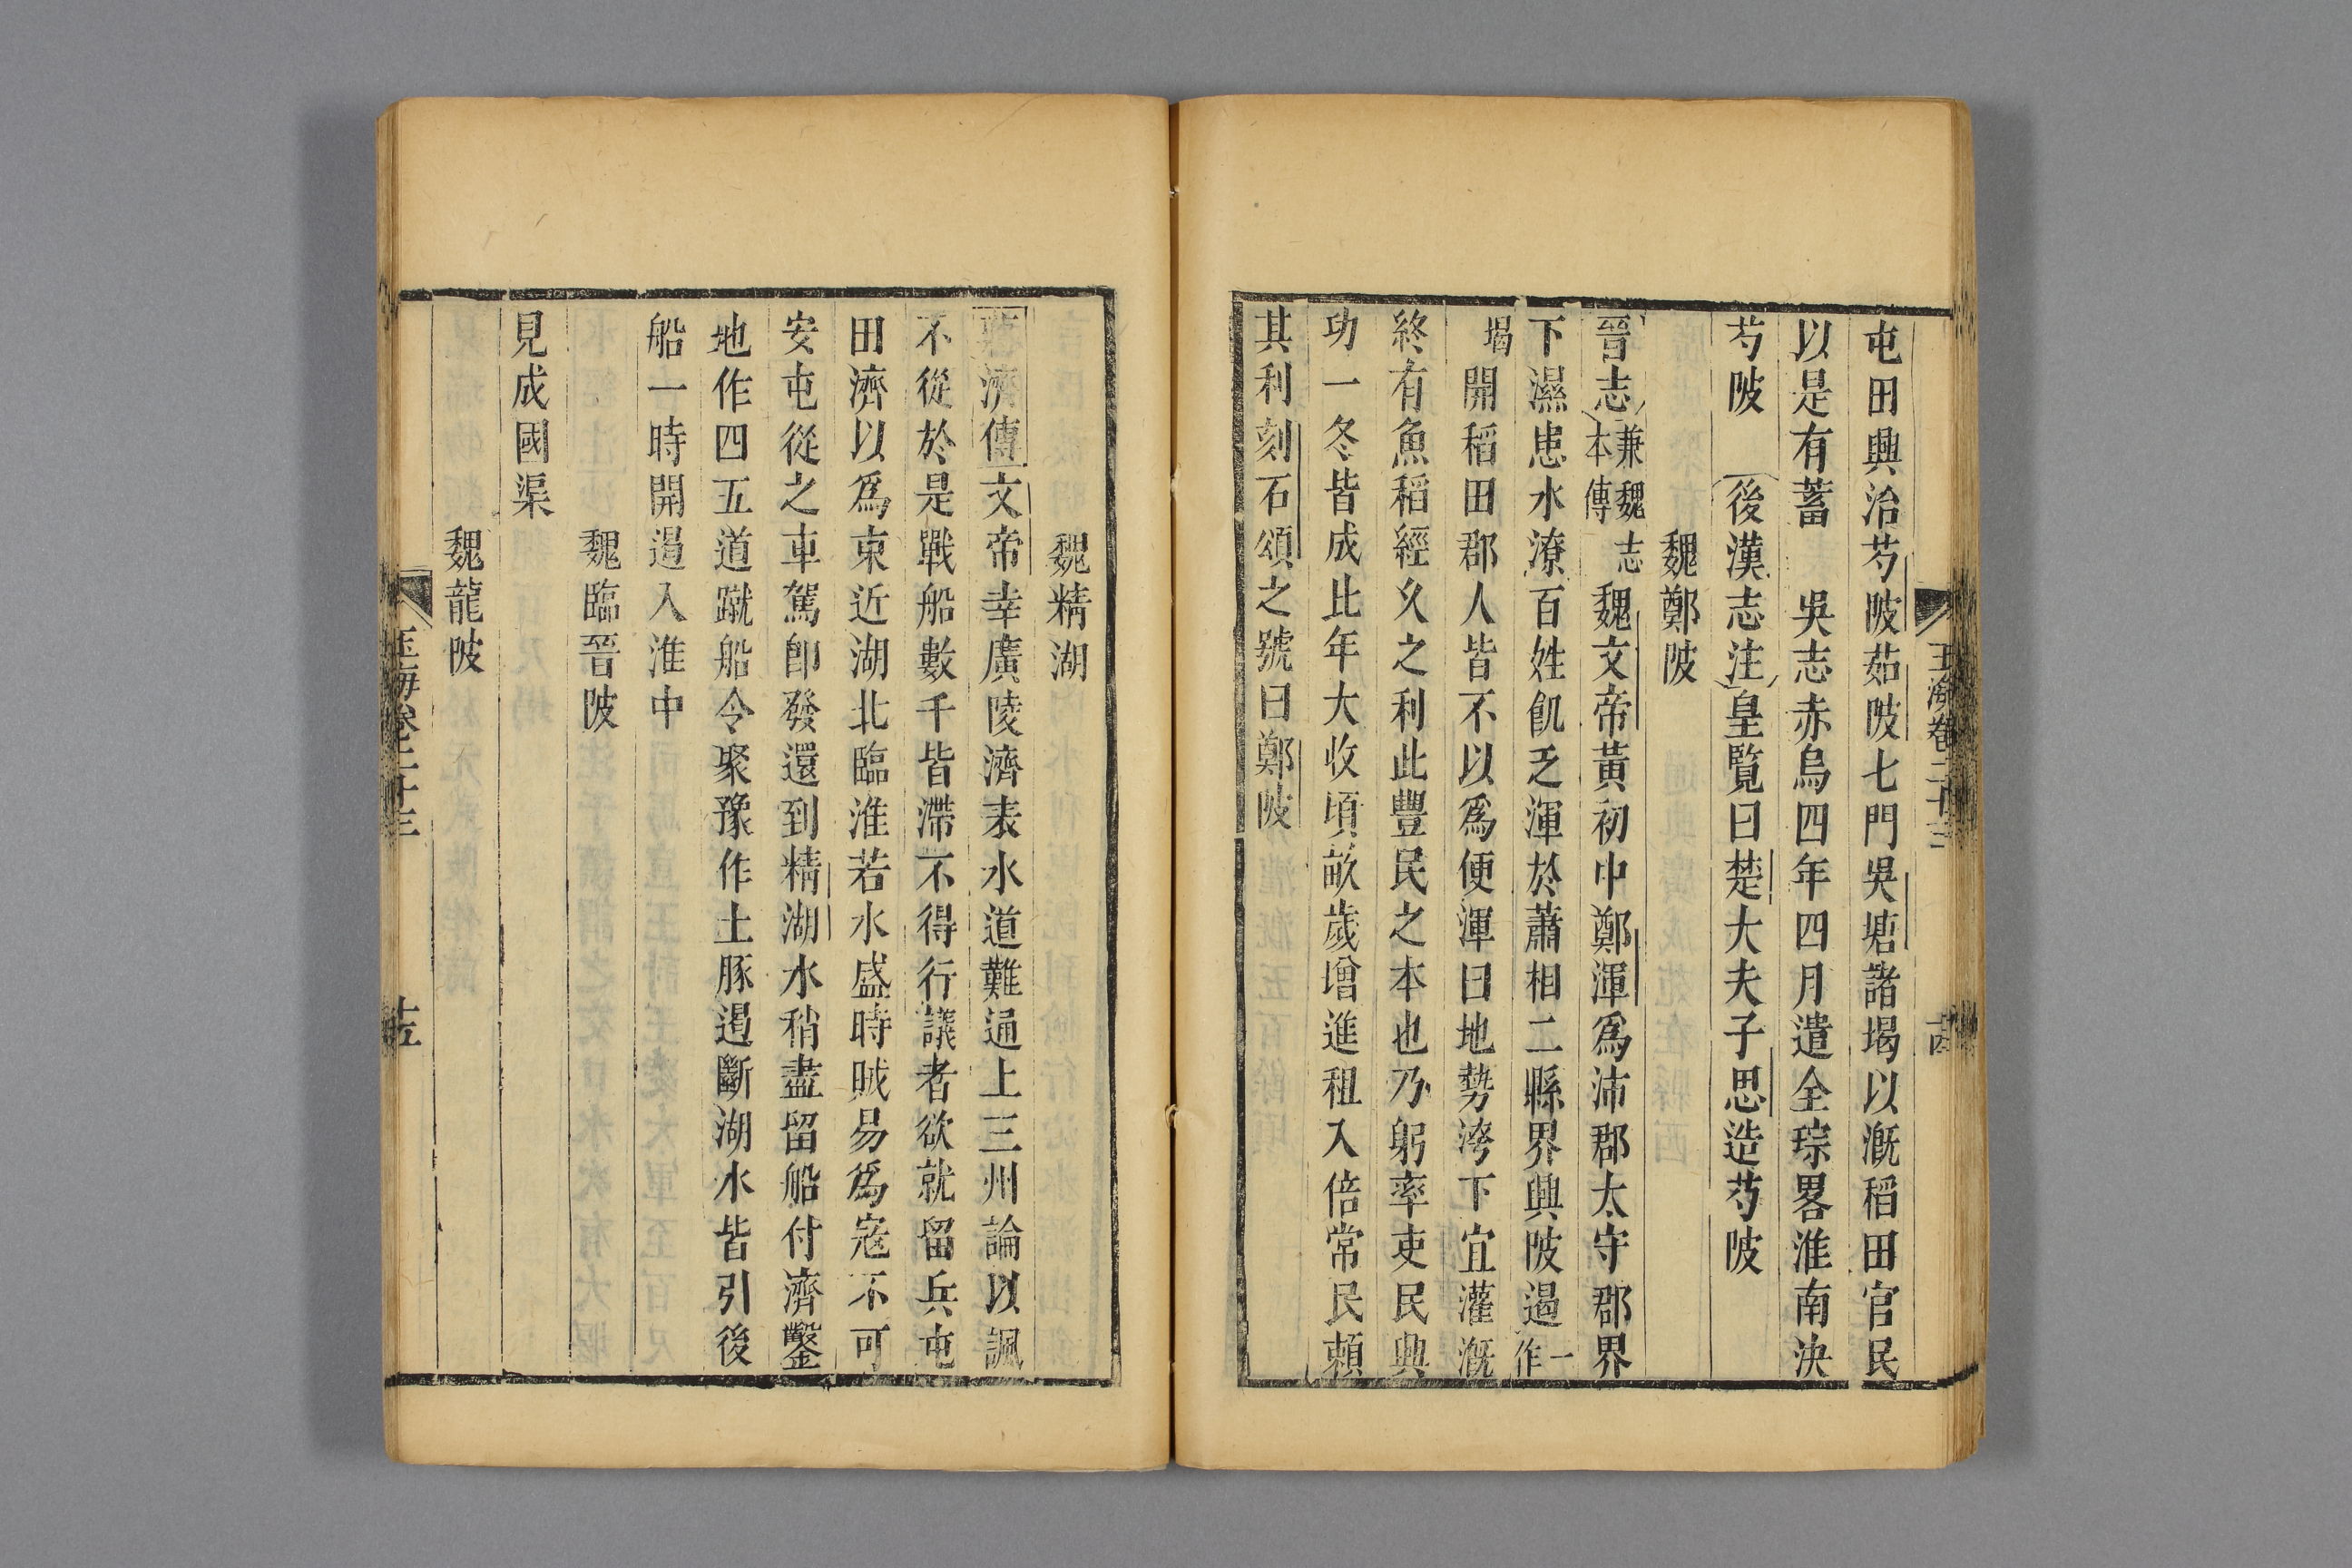 玉海卷二十三
十四
屯田興治芍陂茹陂七門吳塘諸堨以漑稻田官民
以是有蓄　吳志赤烏四年四月遣全琮畧淮南決
芍陂　後漢志注皇覽曰楚大夫子思造芍陂
魏鄭陂
晉志兼魏志本傳　魏文帝黃初中鄭渾爲沛郡太守郡界
下濕患水潦百姓飢乏渾於蕭相二縣界興陂遏一作
堨開稻田郡人皆不以爲便渾曰地勢洿下宜灌漑
終有魚稻經久之利此豐民之本也乃躬率吏民興
功一冬皆成比年大收頃畝歲增進租入倍常民賴
其利刻石頌之號曰鄭陂
魏精湖
濟傳文帝幸廣陵濟表水道難通上三州論以諷
不從於是戰船數千皆滯不得行議者欲就留兵屯
田濟以爲東近湖北臨淮若水盛時賊易爲寇不可
安屯從之車駕卽發還到精湖水稍盡留船付濟鑿
地作四五道蹴船令聚豫作土豚遏斷湖水皆引後
船一時開遏入淮中
魏臨晉陂
見成國渠
魏龍陂
玉海卷二十三
十五